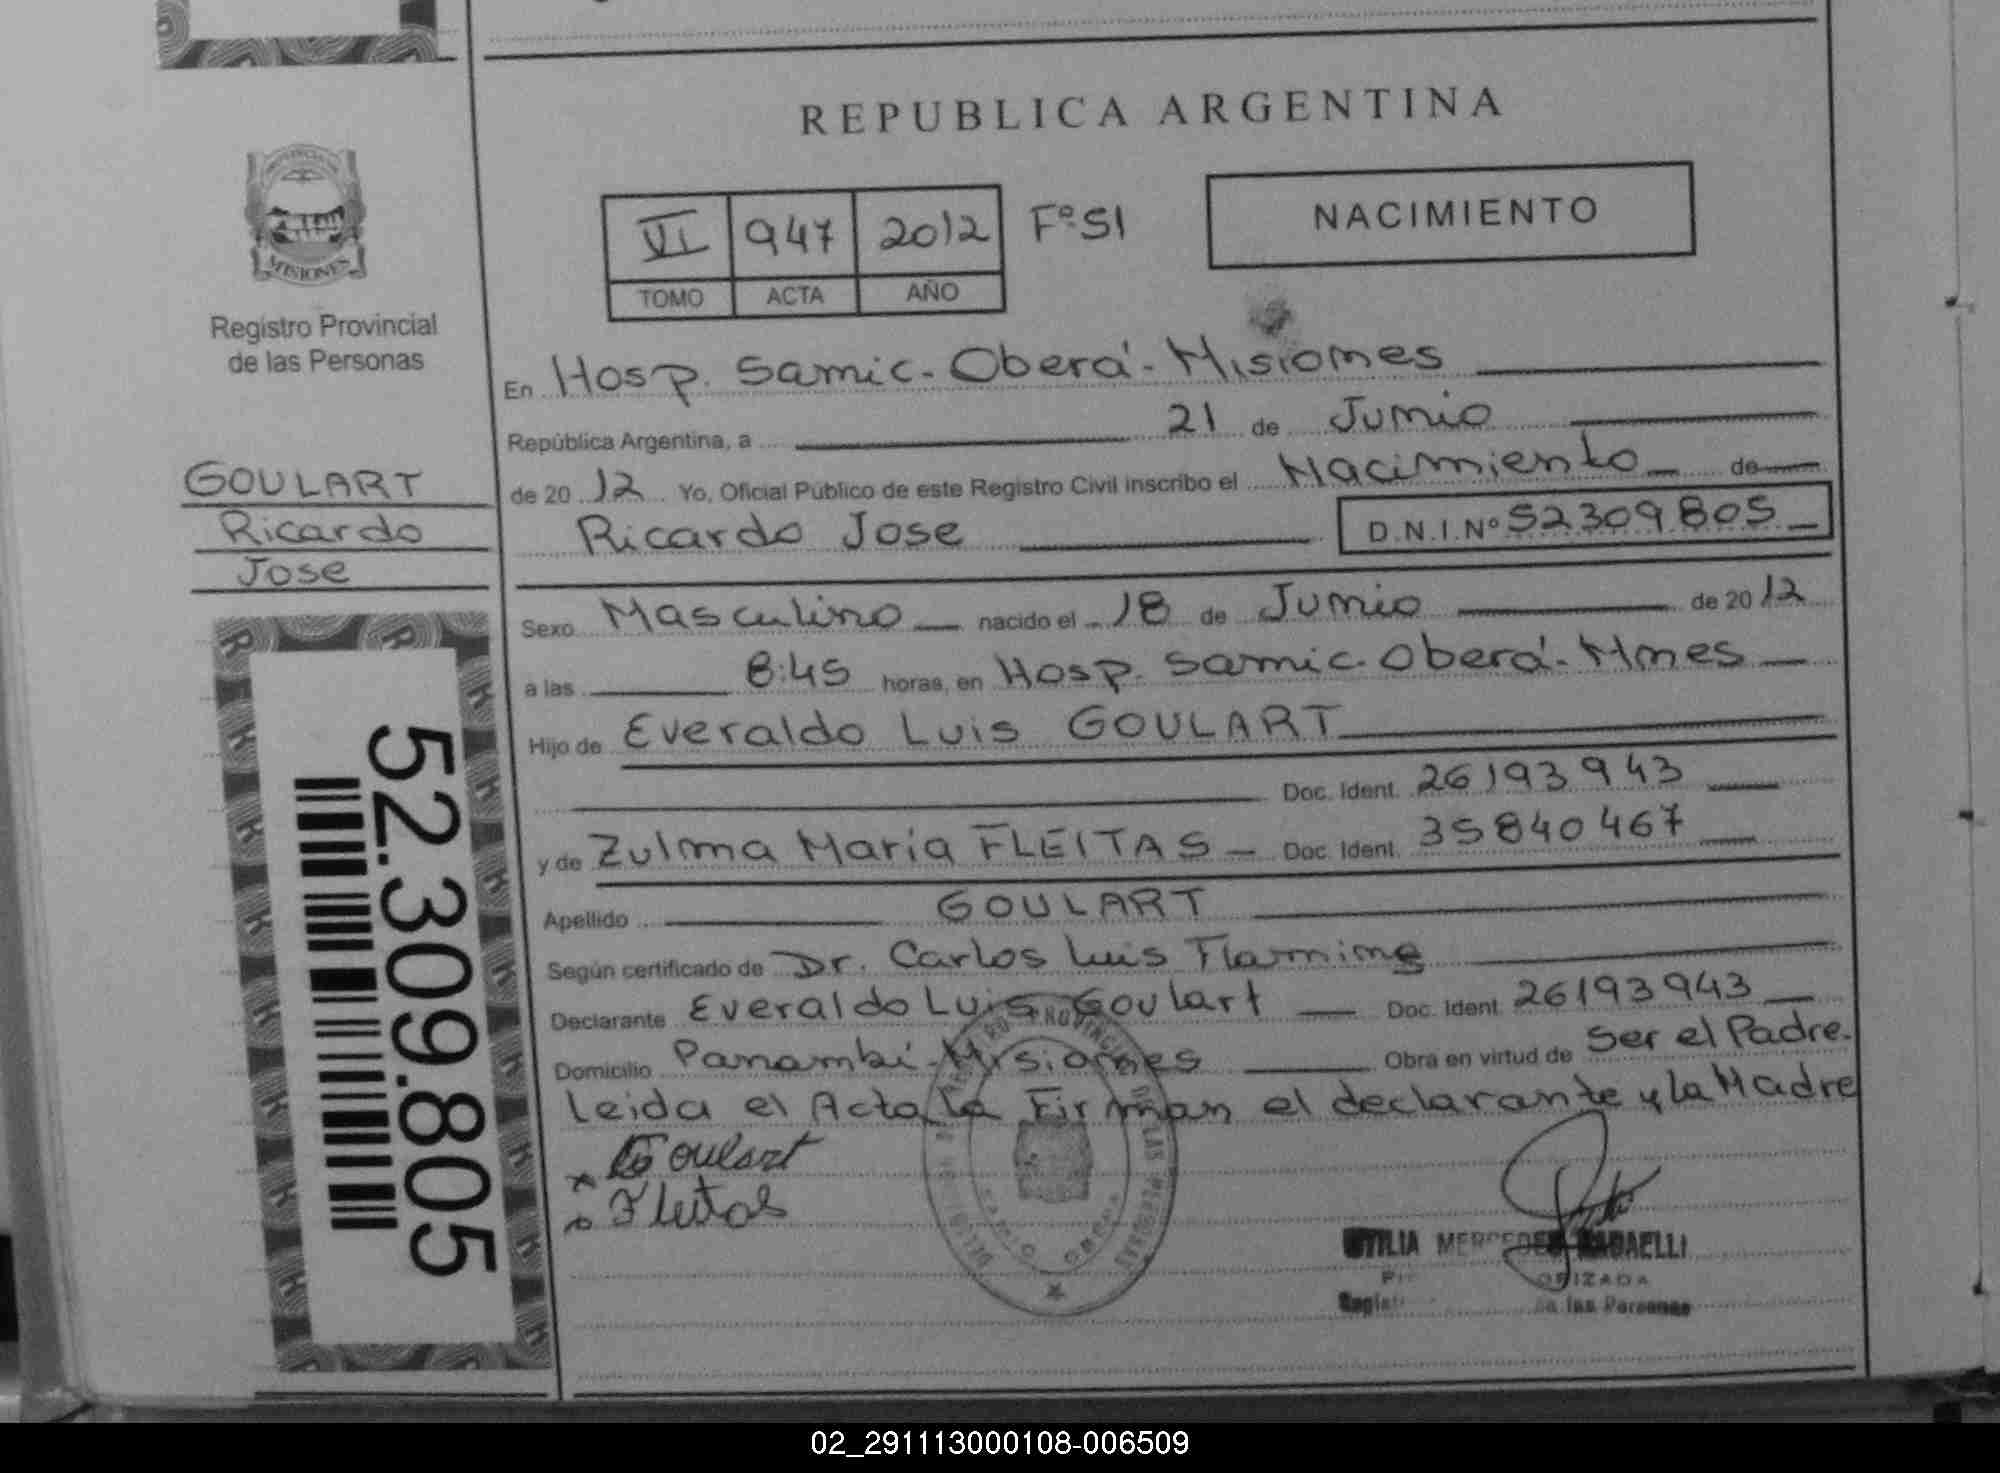 REPUBLICA ARGENTINA
PROVINCIA DE
MISIONES
Registro Provincial
de las Personas
VI 947 2012 Fº 51
TOMO ACTA AÑO
NACIMIENTO
En Hosp. Samic. Oberá - Misiones
República Argentina, a 21 de Junio
de 2012 Yo, Oficial Público de este Registro Civil inscribo el Nacimiento de
Ricardo Jose D.N.I. Nº 52309805
GOULART
Ricardo
Jose
Sexo Masculino nacido el 18 de Junio de 2012
a las 8:45 horas, en Hosp. Samic. Oberá - Mnes
Hijo de Everaldo Luis GOULART
Doc. Ident. 26193943
y de Zulma Maria FLEITAS Doc. Ident. 35840467
Apellido GOULART
Según certificado de Dr. Carlos Luis Flaming
Declarante Everaldo Luis Goulart Doc. Ident. 26193943
Domicilio Panambí - Misiones Obra en virtud de Ser el Padre.
Leida el Acta la Firman el declarante y la Madre
Goulart
Fleitas
52.309.805
REGISTRO PROVINCIAL DE LAS PERSONAS
MERCEDES RADAELLI
de las Personas
02_291113000108-006509